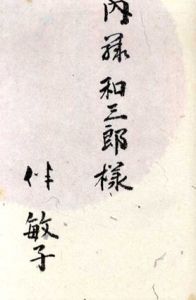 内藤和三郎様
伴敏子